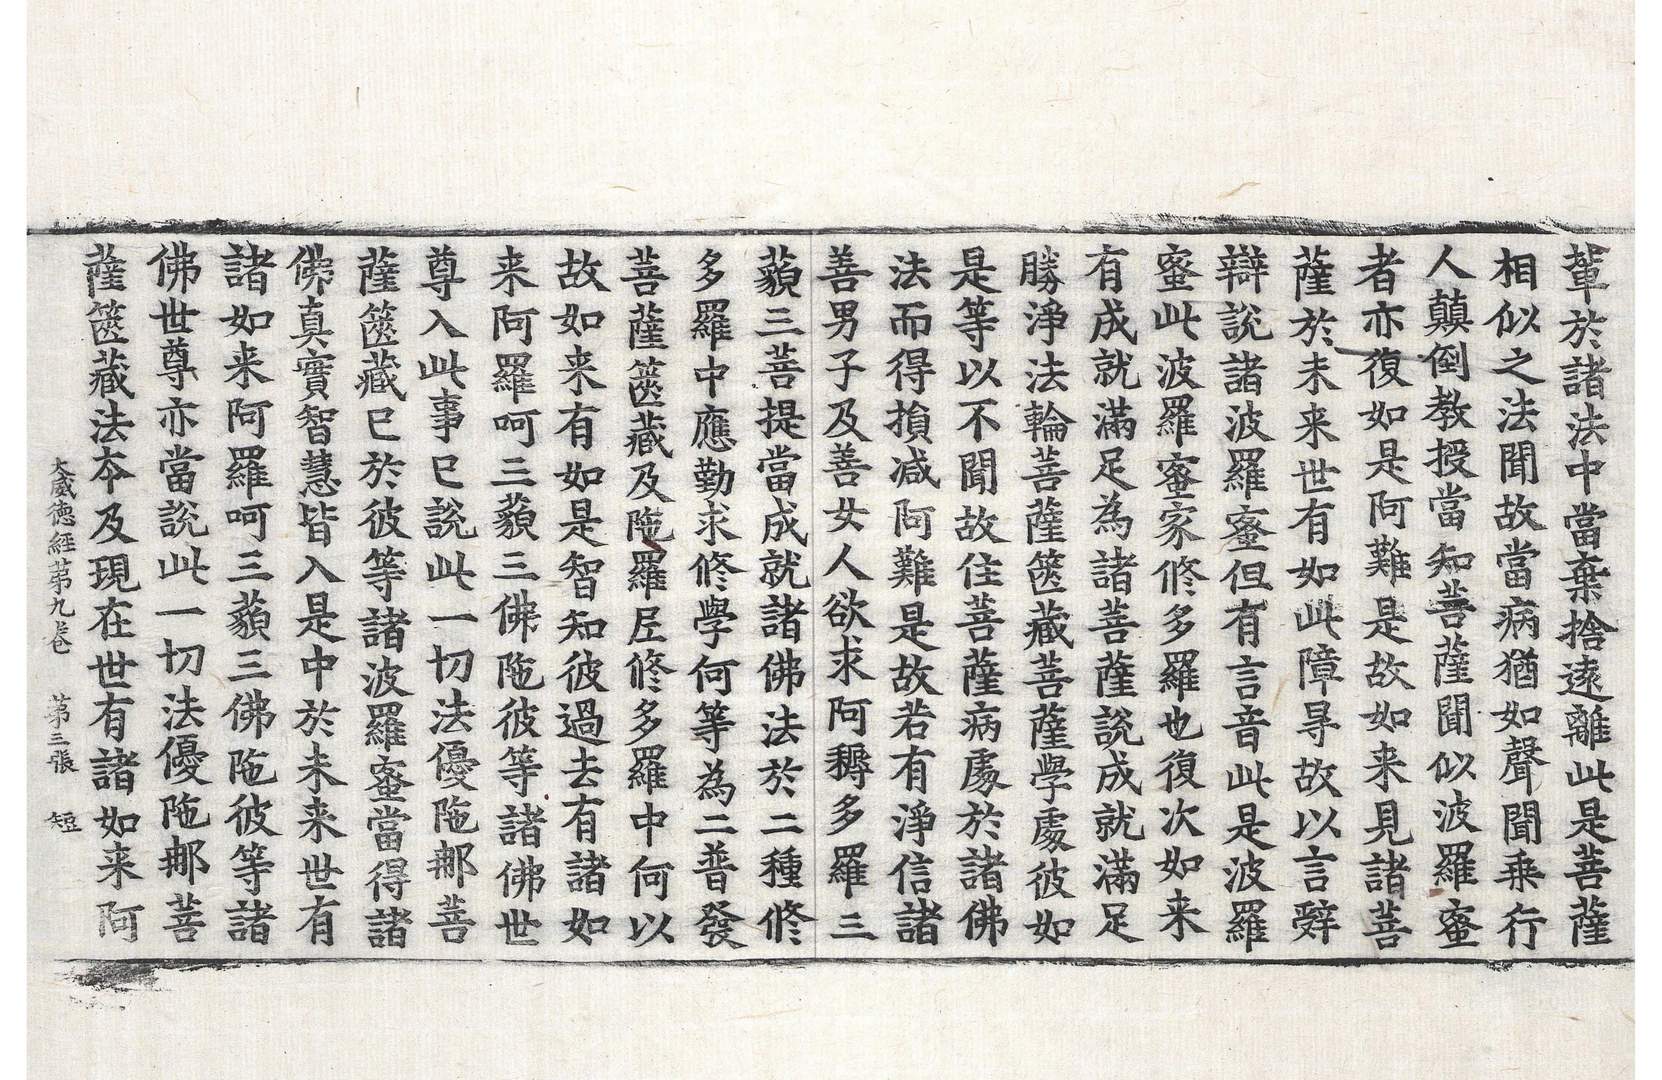 輩於諸法中當棄捨遠離此是菩薩
相似之法聞故當病猶如聲聞乘行
人顛倒教授當知菩薩聞似波羅蜜
者亦復如是阿難是故如来見諸菩
薩於未来世有如此障㝵故以言辭
辯說諸波羅蜜但有言音此是波羅
蜜此波羅蜜家修多羅也復次如来
有成就滿足為諸菩薩說成就滿足
勝淨法輪菩薩篋藏菩薩學處彼如
是等以不聞故住菩薩病處於諸佛
法而得損减阿難是故若有淨信諸
善男子及善女人欲求阿耨多羅三
藐三菩提當成就諸佛法於二種修
多羅中應勤求修學何等為二普發
菩薩篋藏及陁羅尼修多羅中何以
故如来有如是智知彼過去有諸如
来阿羅呵三藐三佛陁彼等諸佛世
尊入此事已說此一切法優陁那菩
薩篋藏已於彼等諸波羅蜜當得諸
佛真實智慧皆入是中於未来世有
諸如来阿羅呵三藐三佛陁彼等諸
佛世尊亦當說此一切法優陁那菩
薩篋藏法夲及現在世有諸如来阿
大威德經苐九卷 苐三張 短